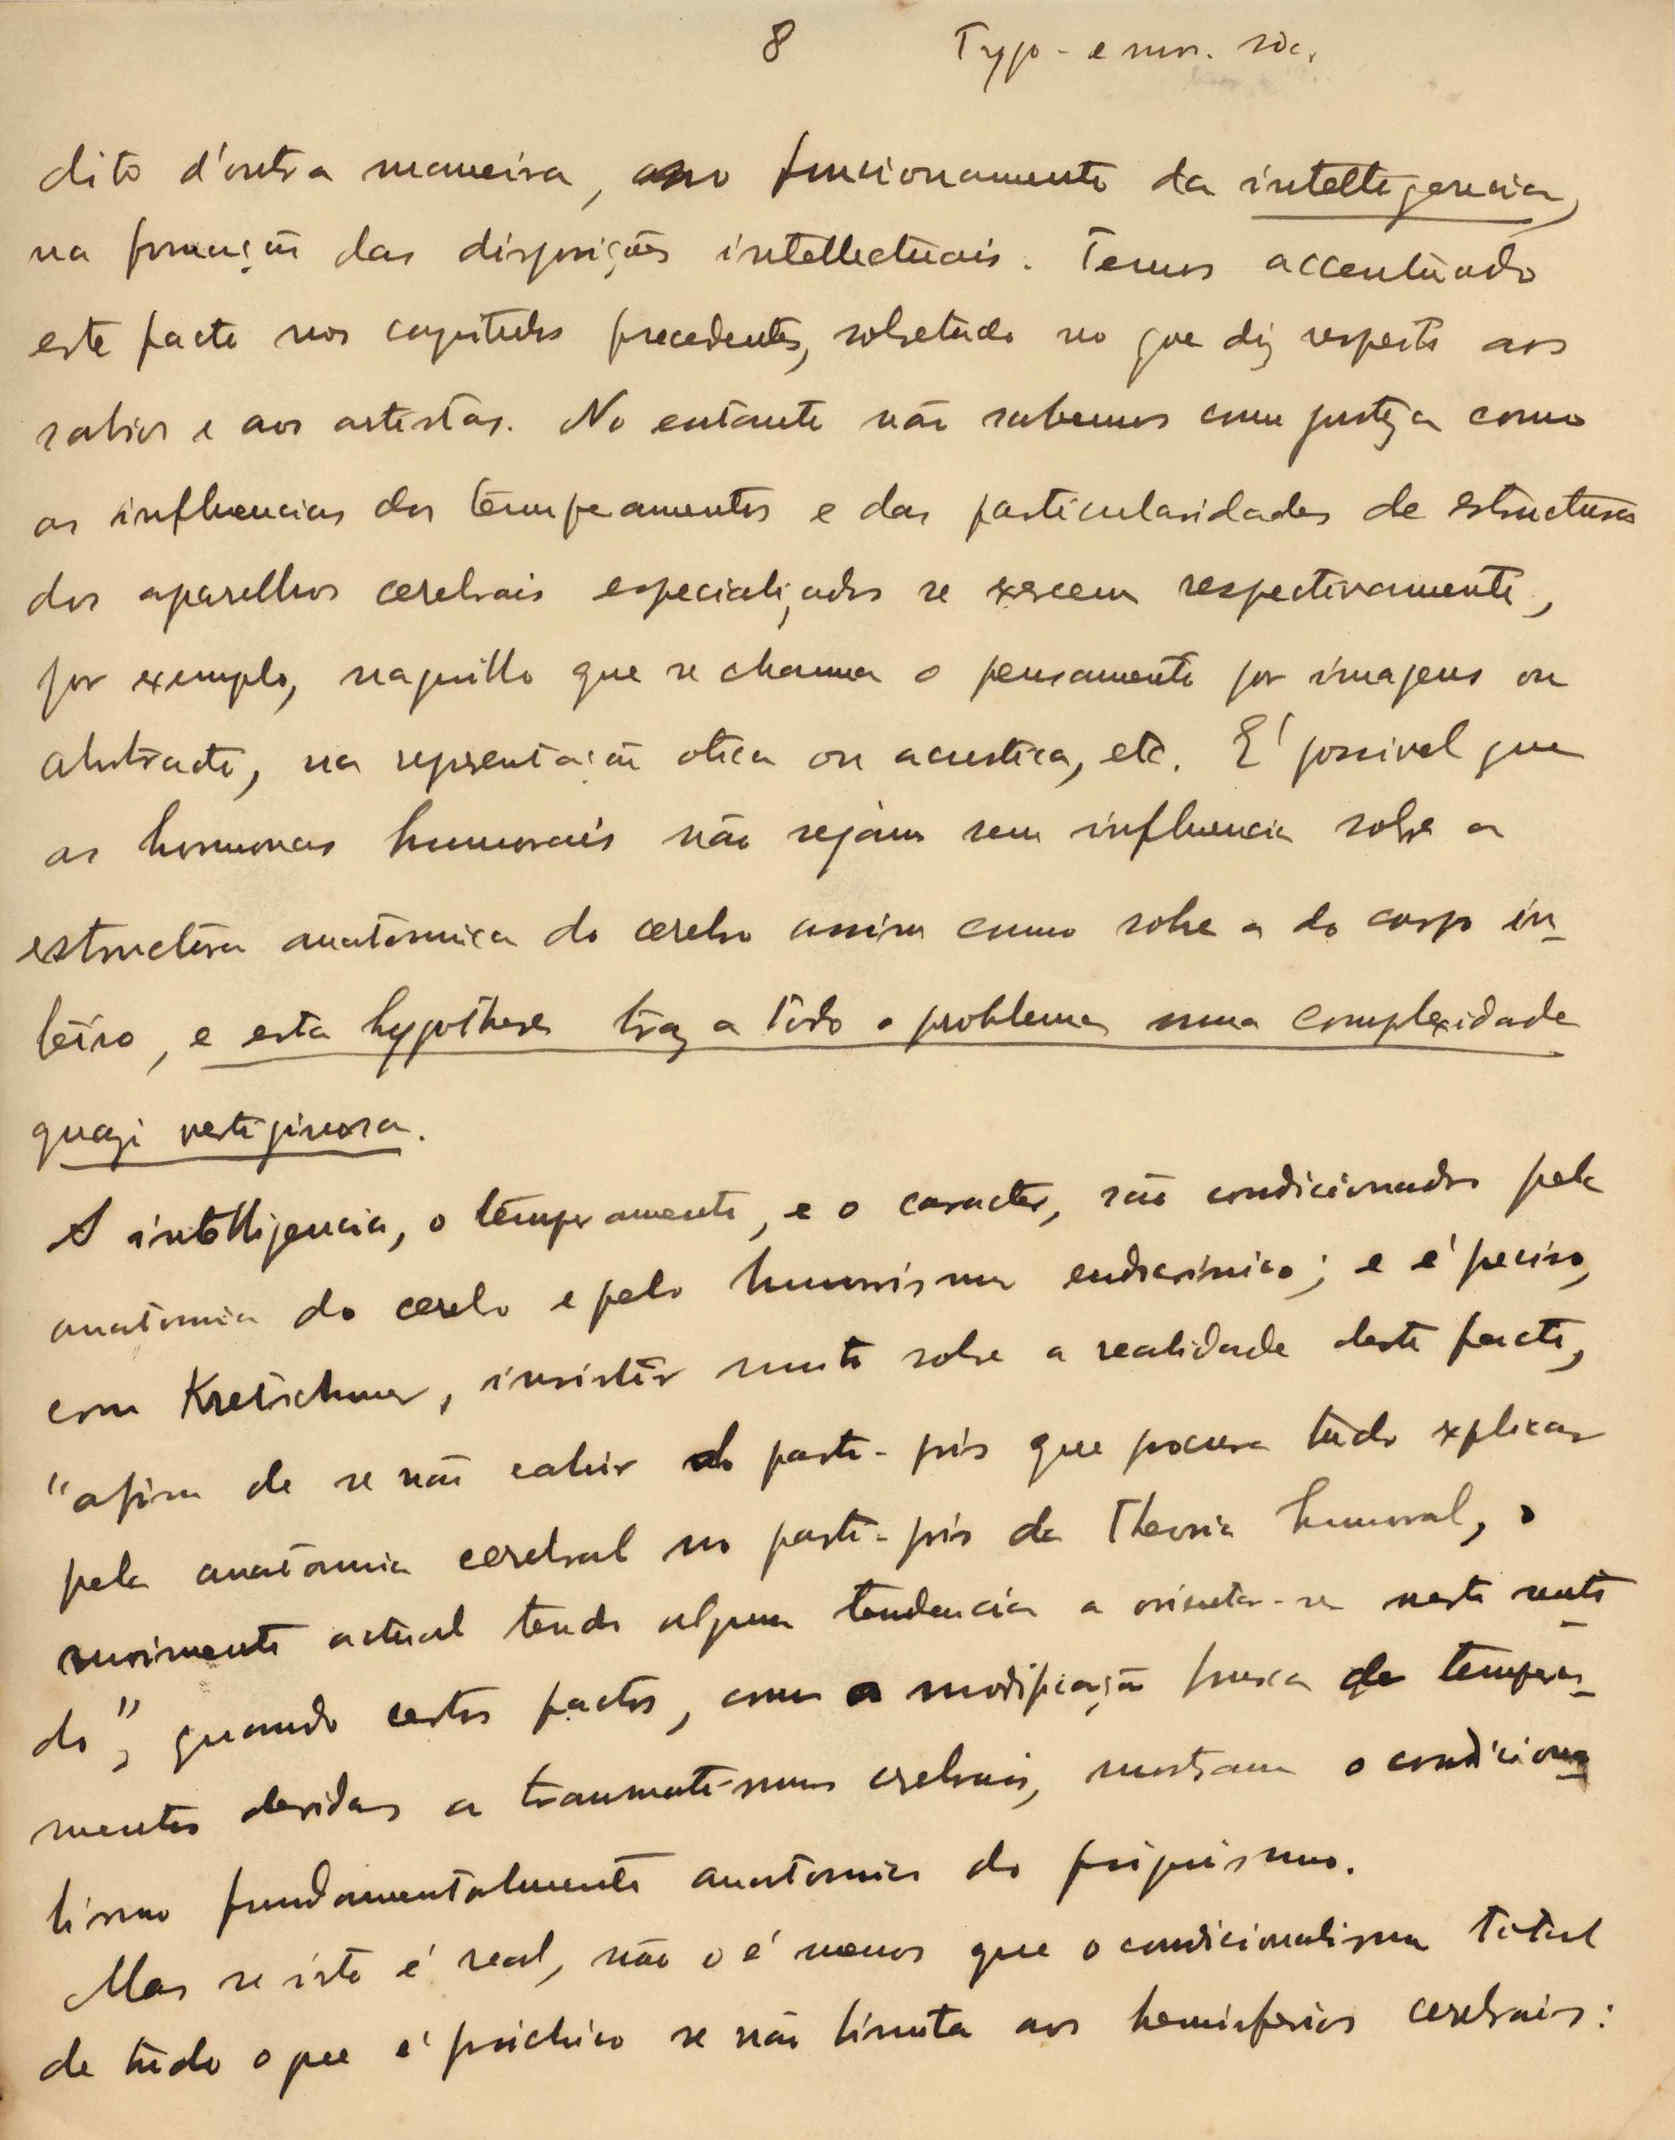 8 Typo- e mor. soc.
dito d'outra maneira, no funcionamento da intelligencia,
na formação das disposições intellectuais. Temos accentuado
este facto nos capitulos precedentes, sobretudo no que diz respeito aos
sabios e aos artistas. No entanto não sabemos com justeza como
as influencias dos temperamentos e das particularidades de estructura
dos aparelhos cerebrais especializados se exercem respectivamente,
por exemplo, naquillo que se chama o pensamento por imagens ou
abstracto, na representação otica ou acustica, etc. É possivel que
as hormonas humorais não sejam sem influencia sobre a
estructura anatomica do cerebro assim como sobre a do corpo in-
teiro, e esta hypothese traz a todo o problema uma complexidade
quazi vertiginosa.
A intelligencia, o temperamento, e o caracter, são condicionados pela
anatomia do cerebro e pelo humorismo endocrinico; e é preciso,
com Kretschmer, insistir muito sobre a realidade deste facto,
"afim de se não cahir do parti-pris que procura tudo explicar
pela anatomia cerebral no parti-pris da Theoria humoral, o
movimento actual tendo alguma tendencia a orientar-se neste senti-
do", quando certos factos, como a modificação brusca de tempera-
mentos devidas a traumatismos cerebrais, mostram o condiciona-
lismo fundamentalmente anatomico do psiquismo.
Mas se isto é real, não o é menos que o condicionalismo total
de tudo o que é psichico se não limita aos hemisferios cerebrais: